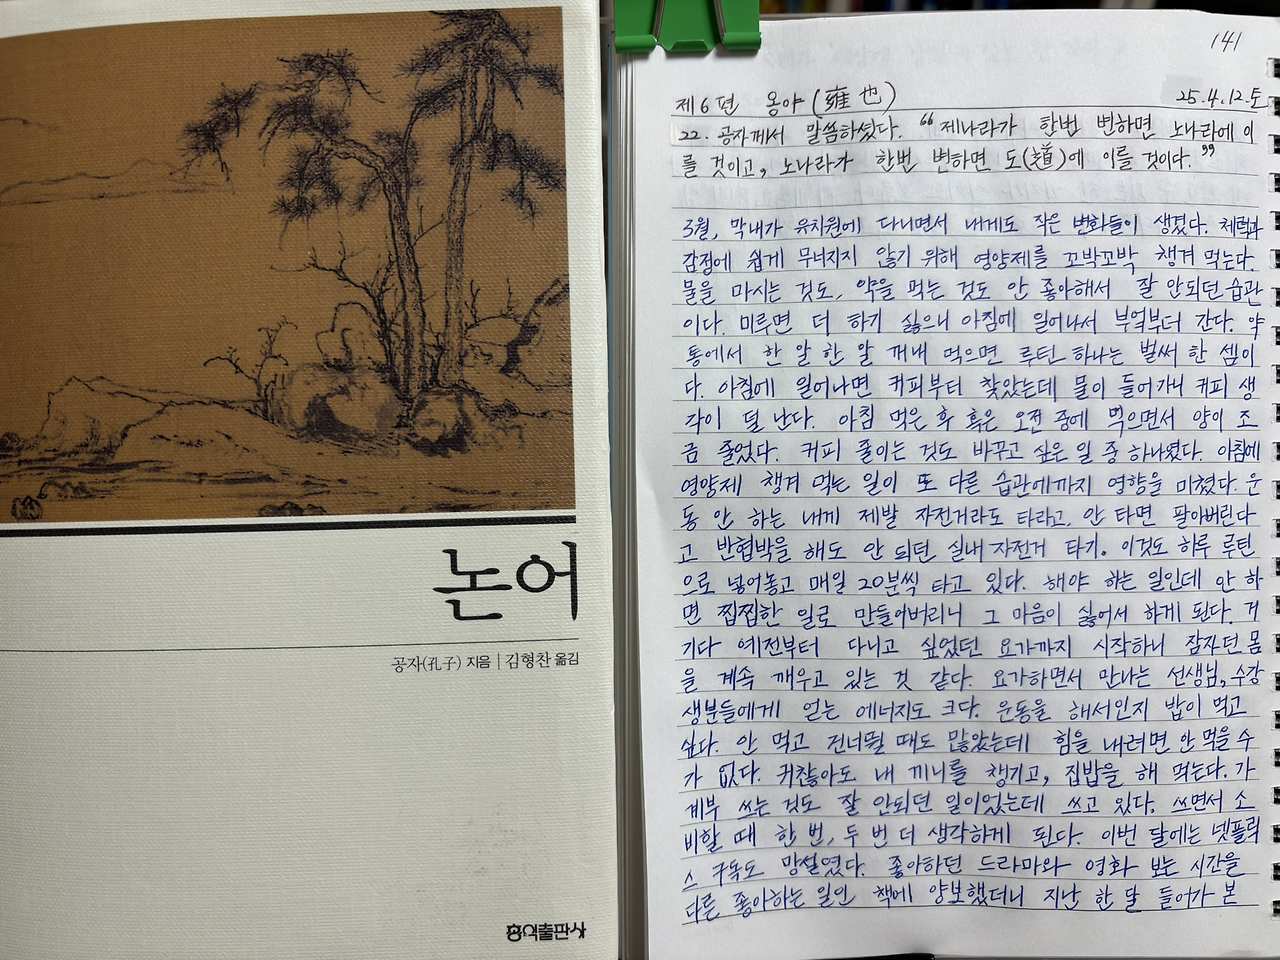 논어
공자(孔子) 지음 | 김형찬 옮김
홍익출판사
141
제6편 옹야(雍也) 25.4.12.토
22. 공자께서 말씀하셨다. “제나라가 한번 변하면 노나라에 이
를 것이고, 노나라가 한번 변하면 도(道)에 이를 것이다.”
3월, 막내가 유치원에 다니면서 내게도 작은 변화들이 생겼다. 체력과
감정에 쉽게 무너지지 않기 위해 영양제를 꼬박꼬박 챙겨 먹는다.
물을 마시는 것도, 약을 먹는 것도 안 좋아해서 잘 안되던 습관
이다. 미루면 더 하기 싫으니 아침에 일어나서 부엌부터 간다. 약
통에서 한 알 한 알 꺼내 먹으면 루틴 하나는 벌써 한 셈이
다. 아침에 일어나면 커피부터 찾았는데 물이 들어가니 커피 생
각이 덜 난다. 아침 먹은 후 혹은 오전 중에 먹으면서 양이 조
금 줄었다. 커피 줄이는 것도 바꾸고 싶은 일 중 하나였다. 아침에
영양제 챙겨 먹는 일이 또 다른 습관에까지 영향을 미쳤다. 운
동 안 하는 내게 제발 자전거라도 타라고, 안 타면 팔아버린다
고 반협박을 해도 안 되던 실내 자전거 타기. 이것도 하루 루틴
으로 넣어놓고 매일 20분씩 타고 있다. 해야 하는 일인데 안 하
면 찝찝한 일로 만들어버리니 그 마음이 싫어서 하게 된다. 거
기다 예전부터 다니고 싶었던 요가까지 시작하니 잠자던 몸
을 계속 깨우고 있는 것 같다. 요가하면서 만나는 선생님, 수강
생분들에게 얻는 에너지도 크다. 운동을 해서인지 밥이 먹고
싶다. 안 먹고 건너뛸 때도 많았는데 힘을 내려면 안 먹을 수
가 없다. 귀찮아도 내 끼니를 챙기고, 집밥을 해 먹는다. 가
계부 쓰는 것도 잘 안되던 일이었는데 쓰고 있다. 쓰면서 소
비할 때 한 번, 두 번 더 생각하게 된다. 이번 달에는 넷플릭
스 구독도 망설였다. 좋아하던 드라마와 영화 보는 시간을
다른 좋아하는 일인 책에 양보했더니 지난 한 달 들어가 본